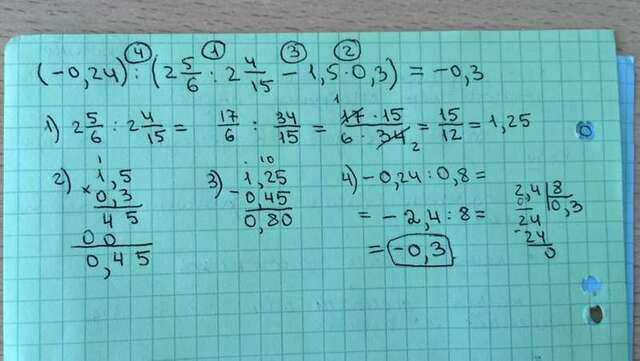 (-0,24) : (2 5/6 : 2 4/15 - 1,5 · 0,3) = -0,3
④ ① ③ ②
1) 2 5/6 : 2 4/15 = 17/6 : 34/15 = 17 · 15 / 6 · 34 = 15/12 = 1,25
1
2
2) 1,5
× 0,3
4 5
0 0
0,4 5
3) 1,25
- 0,45
0,80
10
4) -0,24 : 0,8 =
= -2,4 : 8 =
= -0,3
2,4 | 8
0, | 0,3
24
-24
0